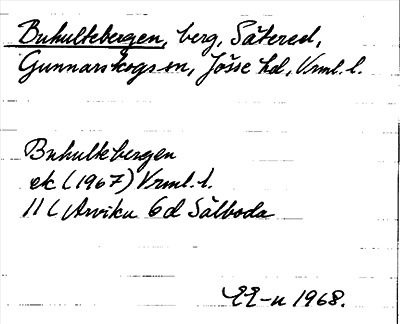 Buhultebergen, berg, Sätered,
Gunnarskogs sn, Jösse hd, Vrml. l.
Buhultebergen
ek (1967) Vrml. l.
11 C Arvika 6d Sälboda
1968.